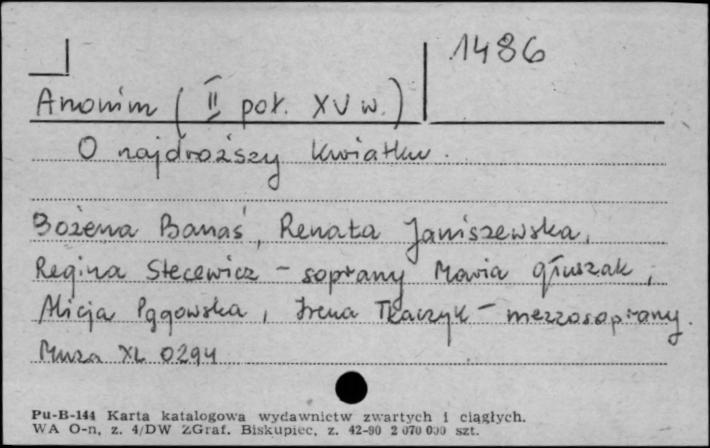 1486
Anonim (II poł. XV w.)
O najdroższy kwiatku.
Bożena Banaś, Renata Janiszewska,
Regina Stecewicz - soprany Maria Głuszak,
Alicja Pągowska, Irena Tkaczyk - mezzosoprany.
Muza XL 0294
Pu-B-144 Karta katalogowa wydawnictw zwartych i ciągłych.
WA O-n, z. 4/DW ZGraf. Biskupiec, z. 42-90 2 070 000 szt.